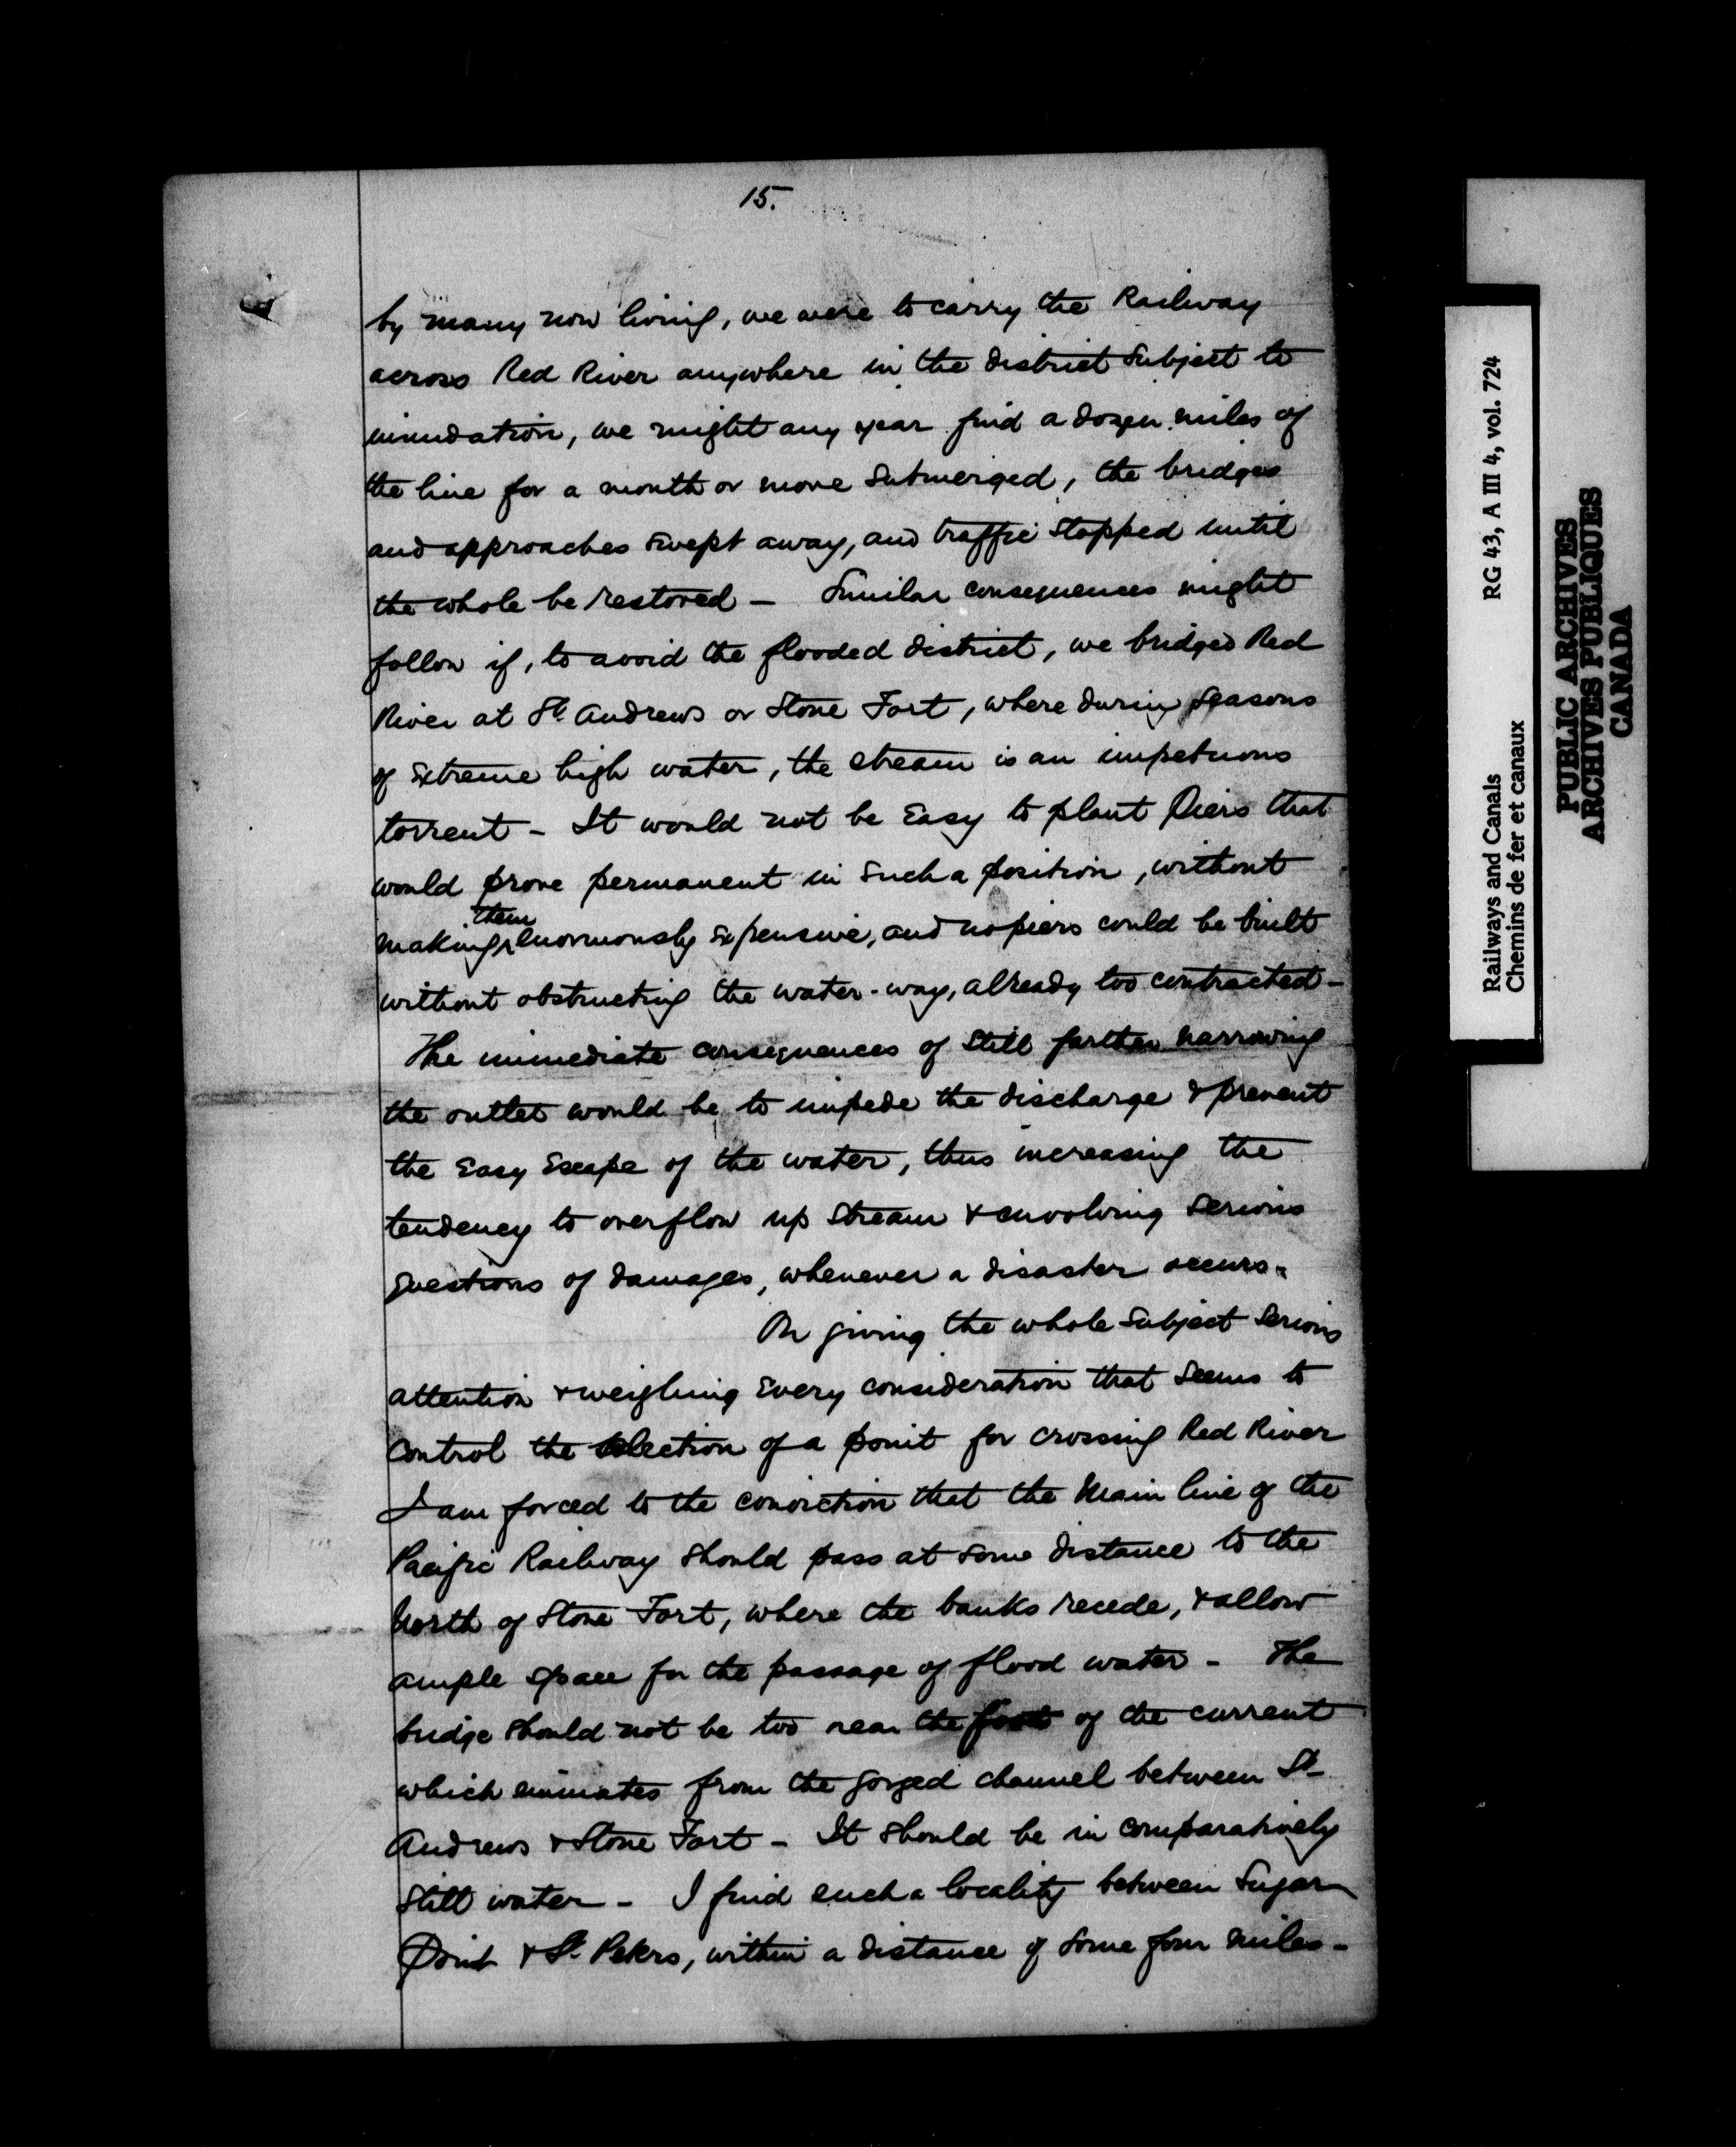 15.
by many now living, we were to carry the Railway
across Red River anywhere in the district subject to
inundation, we might any year find a dozen miles of
the line for a month or more submerged, the bridges
and approaches swept away, and traffic stopped until
the whole be restored – Similar consequences might
follow if, to avoid the flooded district, we bridged Red
River at St. Andrews or Stone Fort, where during seasons
of extreme high water, the stream is an impetuous
torrent – It would not be easy to plant piers that
would prove permanent in such a position, without
making them enormously expensive, and no piers could be built
without obstructing the water-way, already too contracted –
The immediate consequences of still farther narrowing
the outlet would be to impede the discharge & prevent
the easy escape of the water, thus increasing the
tendency to overflow up stream & envolving serious
questions of damages, whenever a disaster occurs.
On giving the whole subject serious
attention & weighing every consideration that seems to
control the selection of a point for crossing Red River
I am forced to the conviction that the Main line of the
Pacific Railway should pass at some distance to the
North of Stone Fort, where the banks recede, & allow
ample space for the passage of flood water – The
bridge should not be too near the foot of the current
which eminates from the gorged channel between St.
Andrews & Stone Fort – It should be in comparatively
still water – I find such a locality between Sugar
Point & St. Peters, within a distance of some four miles –
Railways and Canals RG 43, A III 4, vol. 724
Chemins de fer et canaux
PUBLIC ARCHIVES
ARCHIVES PUBLIQUES
CANADA